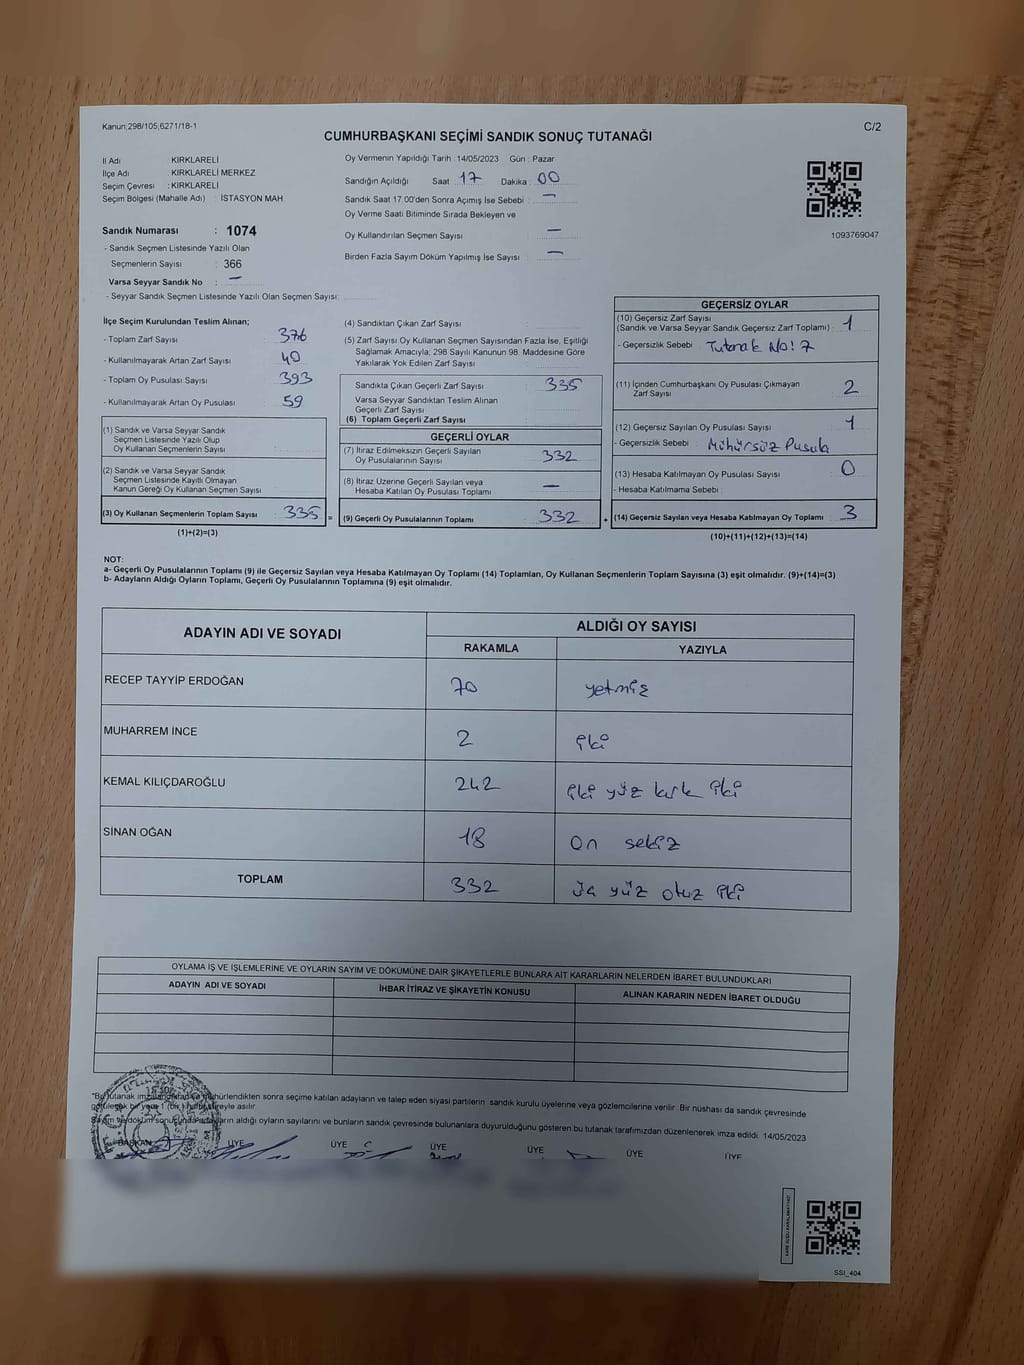 Kanun;298/105;6271/18-1
C/2
CUMHURBAŞKANI SEÇİMİ SANDIK SONUÇ TUTANAĞI
İl Adı KIRKLARELİ
İlçe Adı KIRKLARELİ MERKEZ
Seçim Çevresi : KIRKLARELİ
Seçim Bölgesi (Mahalle Adı) : İSTASYON MAH
Sandık Numarası : 1074
- Sandık Seçmen Listesinde Yazılı Olan
Seçmenlerin Sayısı : 366
Varsa Seyyar Sandık No : —
- Seyyar Sandık Seçmen Listesinde Yazılı Olan Seçmen Sayısı:
Oy Vermenin Yapıldığı Tarih :14/05/2023 Gün : Pazar
Sandığın Açıldığı Saat 17 Dakika 00
Sandık Saat 17.00'den Sonra Açımış İse Sebebi : —
Oy Verme Saati Bitiminde Sırada Bekleyen ve
Oy Kullandırılan Seçmen Sayısı —
Birden Fazla Sayım Döküm Yapılmış İse Sayısı : —
1093769047
İlçe Seçim Kurulundan Teslim Alınan;
- Toplam Zarf Sayısı 376
- Kullanılmayarak Artan Zarf Sayısı 40
- Toplam Oy Pusulası Sayısı 393
- Kullanılmayarak Artan Oy Pusulası 59
(1) Sandık ve Varsa Seyyar Sandık
Seçmen Listesinde Yazılı Olup
Oy Kullanan Seçmenlerin Sayısı
(2) Sandık ve Varsa Seyyar Sandık
Seçmen Listesinde Kayıtlı Olmayan
Kanun Gereği Oy Kullanan Seçmen Sayısı
(3) Oy Kullanan Seçmenlerin Toplam Sayısı 335 =
(1)+(2)=(3)
(4) Sandıktan Çıkan Zarf Sayısı :
(5) Zarf Sayısı Oy Kullanan Seçmen Sayısından Fazla İse, Eşitliği
Sağlamak Amacıyla; 298 Sayılı Kanunun 98. Maddesine Göre
Yakılarak Yok Edilen Zarf Sayısı :
Sandıkta Çıkan Geçerli Zarf Sayısı : 335
Varsa Seyyar Sandıktan Teslim Alınan
Geçerli Zarf Sayısı
(6) Toplam Geçerli Zarf Sayısı :
GEÇERLİ OYLAR
(7) İtiraz Edilmeksizin Geçerli Sayılan
Oy Pusulalarının Sayısı : 332
(8) İtiraz Üzerine Geçerli Sayılan veya
Hesaba Katılan Oy Pusulası Toplamı : —
(9) Geçerli Oy Pusulalarının Toplamı : 332 +
GEÇERSİZ OYLAR
(10) Geçersiz Zarf Sayısı
(Sandık ve Varsa Seyyar Sandık Geçersiz Zarf Toplamı) : 1
- Geçersizlik Sebebi : Tutanak No: 7
(11) İçinden Cumhurbaşkanı Oy Pusulası Çıkmayan
Zarf Sayısı : 2
(12) Geçersiz Sayılan Oy Pusulası Sayısı : 1
- Geçersizlik Sebebi : Mühürsüz Pusula
(13) Hesaba Katılmayan Oy Pusulası Sayısı : 0
- Hesaba Katılmama Sebebi :
(14) Geçersiz Sayılan veya Hesaba Katılmayan Oy Toplamı : 3
(10)+(11)+(12)+(13)=(14)
NOT:
a- Geçerli Oy Pusulalarının Toplamı (9) ile Geçersiz Sayılan veya Hesaba Katılmayan Oy Toplamı (14) Toplamları, Oy Kullanan Seçmenlerin Toplam Sayısına (3) eşit olmalıdır. (9)+(14)=(3)
b- Adayların Aldığı Oyların Toplamı, Geçerli Oy Pusulalarının Toplamına (9) eşit olmalıdır.
ADAYIN ADI VE SOYADI ALDIĞI OY SAYISI
RAKAMLA YAZIYLA
RECEP TAYYİP ERDOĞAN 70 yetmiş
MUHARREM İNCE 2 iki
KEMAL KILIÇDAROĞLU 242 iki yüz kırk iki
SİNAN OĞAN 18 on sekiz
TOPLAM 332 yüz otuz iki
OYLAMA İŞ VE İŞLEMLERİNE VE OYLARIN SAYIM VE DÖKÜMÜNE DAİR ŞİKAYETLERLE BUNLARA AİT KARARLARIN NELERDEN İBARET BULUNDUKLARI
ADAYIN ADI VE SOYADI İHBAR İTİRAZ VE ŞİKAYETİN KONUSU ALINAN KARARIN NEDEN İBARET OLDUĞU
"Bu tutanak mühürlendikten sonra seçime katılan adayların ve talep eden siyasi partilerin; sandık kurulu üyelerine veya gözlemcilerine verilir .Bir nüshası da sandık çevresinde
bir yere 1 (bir) süreyle asılır
aldığı oyların sayılarını ve bunların sandık çevresinde bulunanlara duyurulduğunu gösteren bu tutanak tarafımızdan düzenlenerek imza edildi. 14/05/2023
BAŞKAN ÜYE ÜYE ÜYE ÜYE ÜYE ÜYE
SSI_404